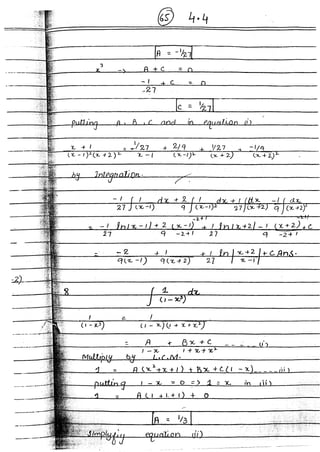 65 4.4
A = -1/27
x³ → A + C = 0
-1/27 + C = 0
C = 1/27
putting A, B, C and in equation i)
x + 1 / (x-1)²(x+2)² = -1/27 / x-1 + 2/9 / (x-1)² + 1/27 / (x+2) + -1/9 / (x+2)²
by Integration.
-1/27 ∫ 1/(x-1) dx + 2/9 ∫ 1/(x-1)² dx + 1/27 ∫ dx/(x+2) - 1/9 ∫ dx/(x+2)²
= -1/27 ln|x-1| + 2/9 (x-1)^-2+1 / -2+1 + 1/27 ln|x+2| - 1/9 (x+2)^-2+1 / -2+1 + c
= -2/9(x-1) + 1/9(x+2) + 1/27 ln |x+2 / x-1| + C Ans.
8 ∫ 1/(1-x³) dx
1/(1-x³) = 1/(1-x)(1+x+x²)
= A/1-x + Bx+C/1+x+x² ----- (i)
Multiply by L.C.M.
1 = A(x²+x+1) + Bx+C(1-x) ----- ii)
putting 1-x = 0 => 1 = x in ii)
1 = A(1+1+1) + 0
A = 1/3
equation ii)